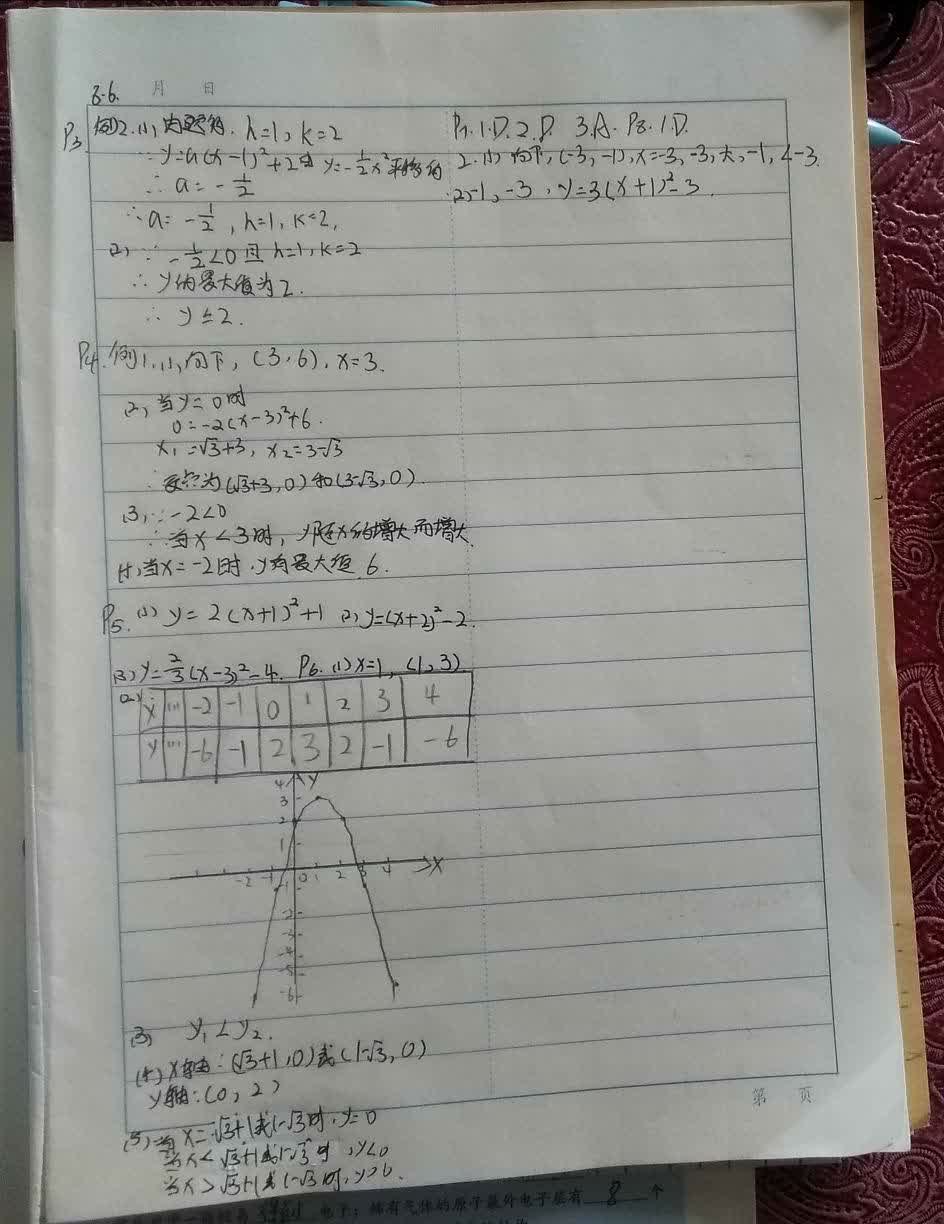 8.6. 月 日
P3 例2.(1)由题得. h=1, k=2
∵y=a(x-1)²+2由y=-1/2x²平移得
∴a=-1/2
∴a=-1/2, h=1, k=2,
(2)∵-1/2<0且h=1, k=2
∴y的最大值为2.
∴y≤2.
P4.例1.(1)向下, (3,6), x=3.
(2)当y=0时
0=-2(x-3)²+6.
x₁=√3+3, x₂=3-√3
∴交点为(√3+3,0)和(3-√3,0).
(3)∵-2<0
∴当x<3时, y随x的增大而增大.
(4)当x=-2时, y有最大值 6.
P5.(1) y=2(x+1)²+1 (2) y=(x+2)²-2.
(3) y=2/3(x-3)²-4. P6.(1)x=1, (1,3)
(2)
x ... -2 -1 0 1 2 3 4
y ... -6 -1 2 3 2 -1 -6
4 y
3
2
1
-2 -1 0 1 2 3 4 x
-1
-2
-3
-4
-5
-6
(3) y₁<y₂.
(4) x轴: (√3+1,0)或(1-√3,0)
y轴: (0,2)
(5)当x=√3+1或1-√3时, y=0
当x<√3+1或1-√3时, y<0
当x>√3+1或1-√3时, y>0.
P7.1.D.2.D. 3.A. P8.1.D.
2.(1)向下, (-3,-1), x=-3, -3, 大, -1, <-3.
(2)-1, -3, y=3(x+1)²-3.
第 页
电子; 稀有气体的原子最外电子层有 8 个